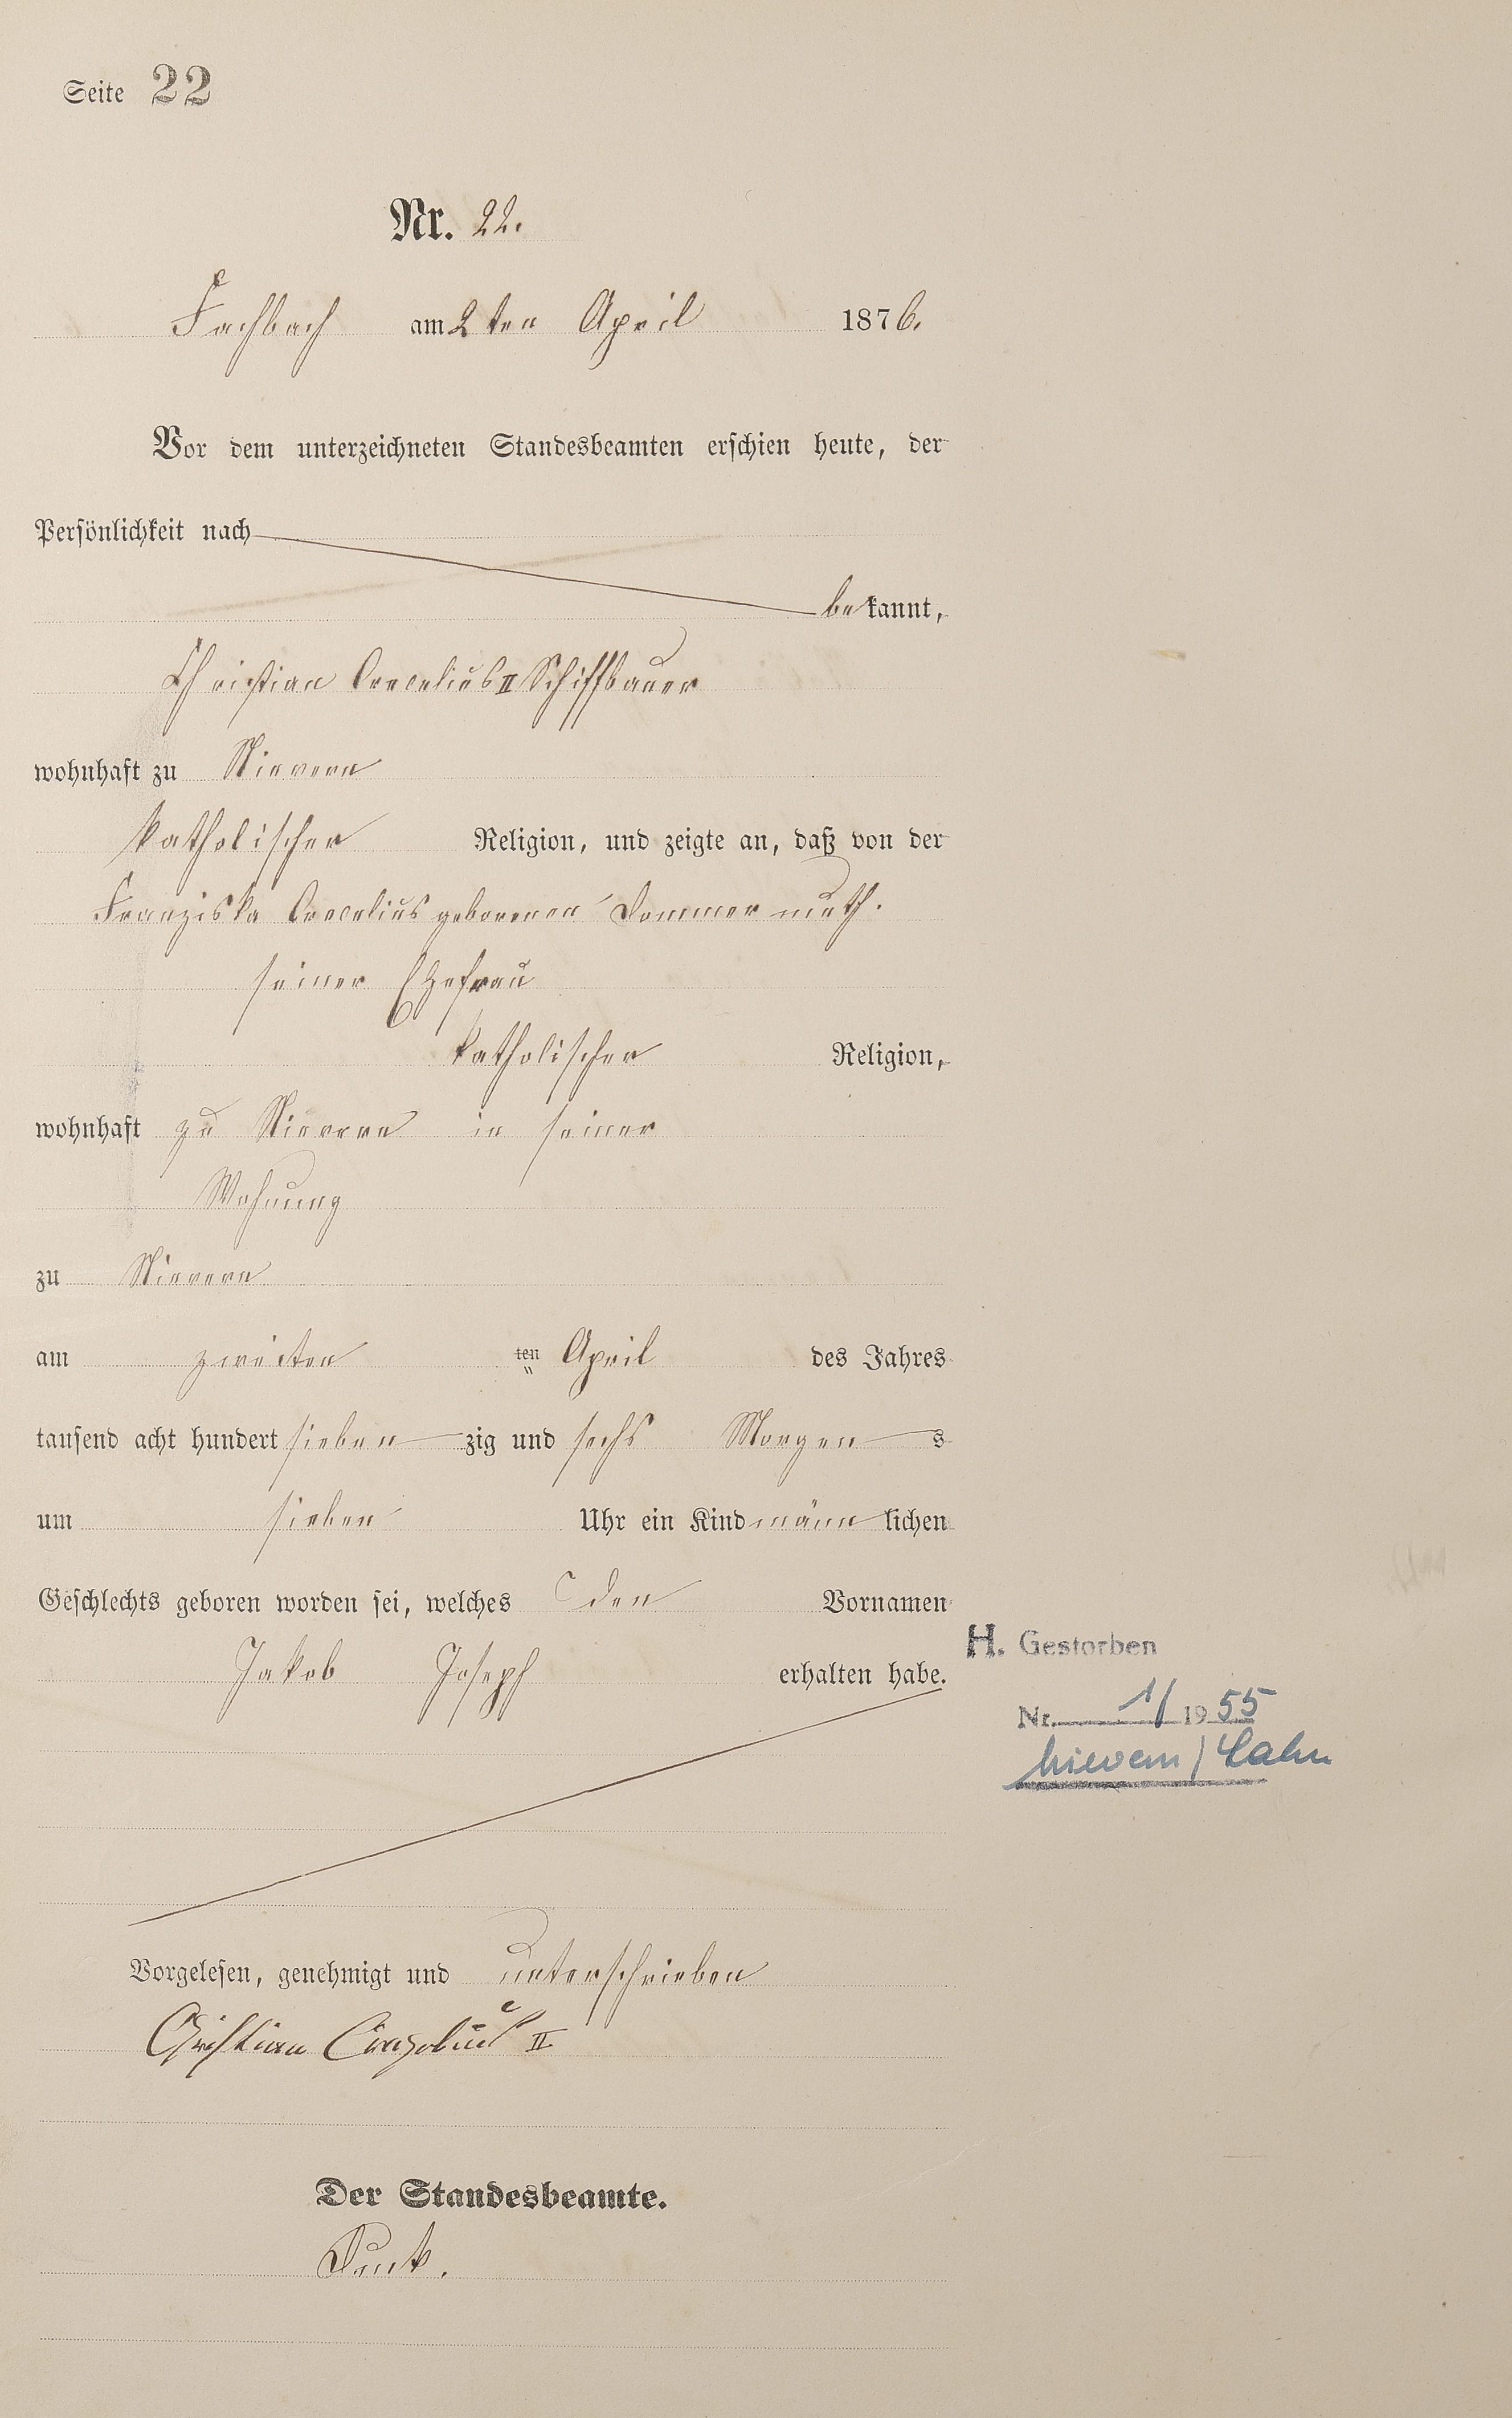 Seite 22
Nr. 22.
Fachbach am 2ten April 1876.
Vor dem unterzeichneten Standesbeamten erschien heute, der
Persönlichkeit nach
bekannt,
Christian Crecelius II Schiffbauer
wohnhaft zu Nievern
katholischer Religion, und zeigte an, daß von der
Franziska Crecelius geborenen Dommermuth.
seiner Ehefrau
katholischer Religion,
wohnhaft zu Nievern in seiner
Wohnung
zu Nievern
am zweiten ten April des Jahres
tausend acht hundert sieben zig und sechs Morgens
um sieben Uhr ein Kind männlichen
Geschlechts geboren worden sei, welches den Vornamen
Jakob Joseph erhalten habe.
H. Gestorben
Nr. 1/1955
Nievern/Lahn
Vorgelesen, genehmigt und unterschrieben
Christian II
Der Standesbeamte.